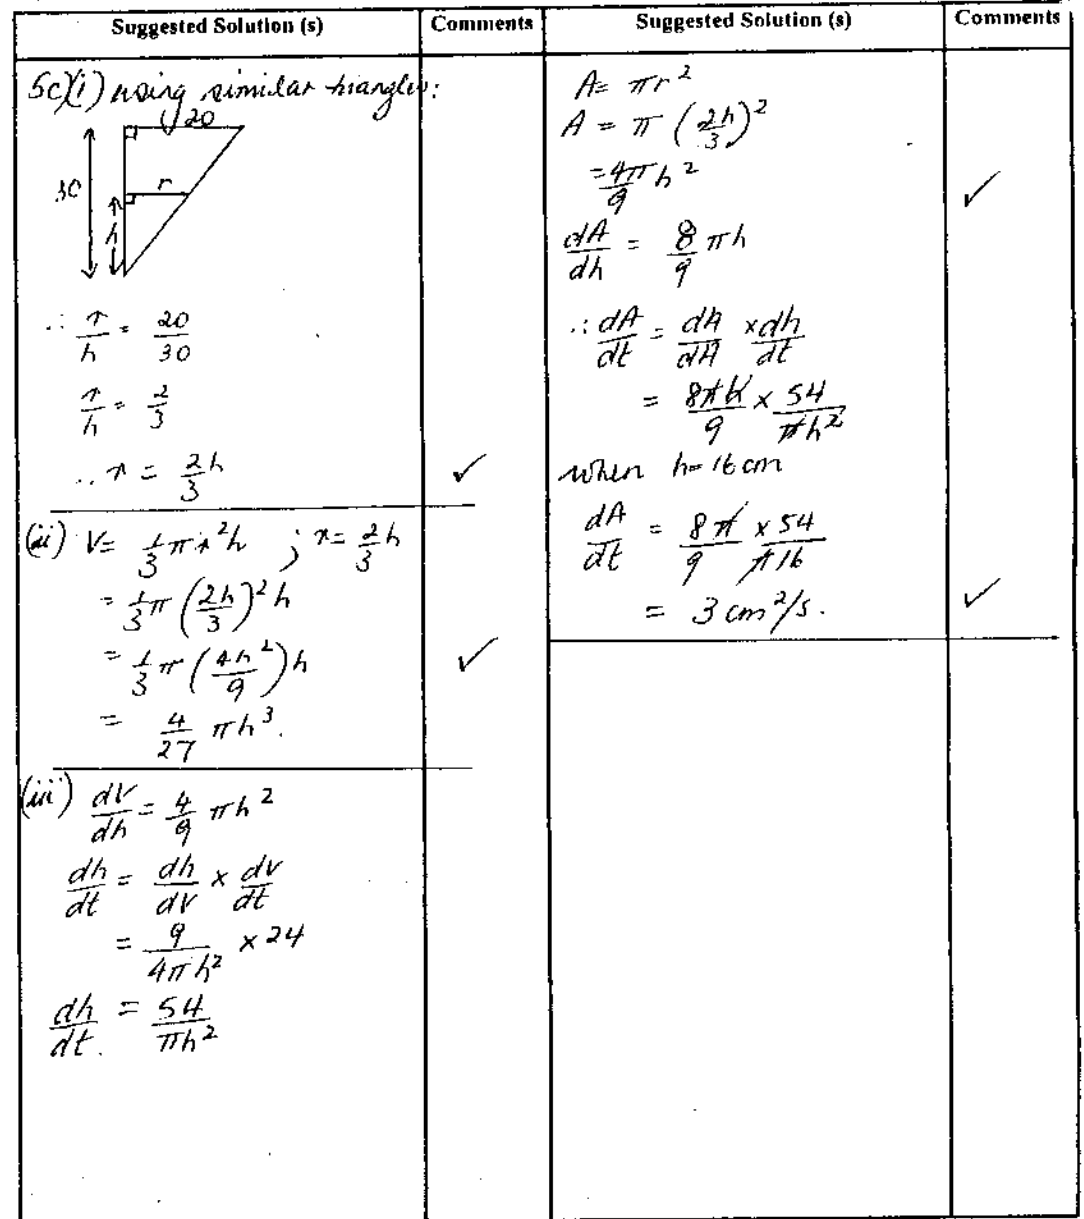 Suggested Solution (s)
Comments
5c)(i) using similar triangles:
20
30
r
h
∴ r/h = 20/30
r/h = 2/3
∴ r = 2h/3
✓
(ii) V = 1/3 πr²h ; r = 2/3 h
= 1/3 π (2h/3)² h
= 1/3 π (4h²/9) h
✓
= 4/27 πh³.
(iii) dV/dh = 4/9 πh²
dh/dt = dh/dV × dV/dt
= 9/4πh² × 24
dh/dt. = 54/πh²
Suggested Solution (s)
Comments
A = πr²
A = π (2h/3)²
= 4π/9 h²
✓
dA/dh = 8/9 πh
∴ dA/dt = dA/dH × dh/dt
= 8πh/9 × 54/πh²
when h = 16 cm
dA/dt = 8π/9 × 54/π16
= 3 cm²/s.
✓